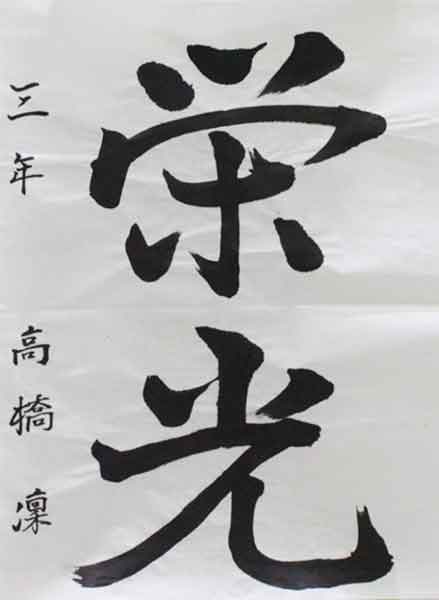 栄光
三年 高橋凜